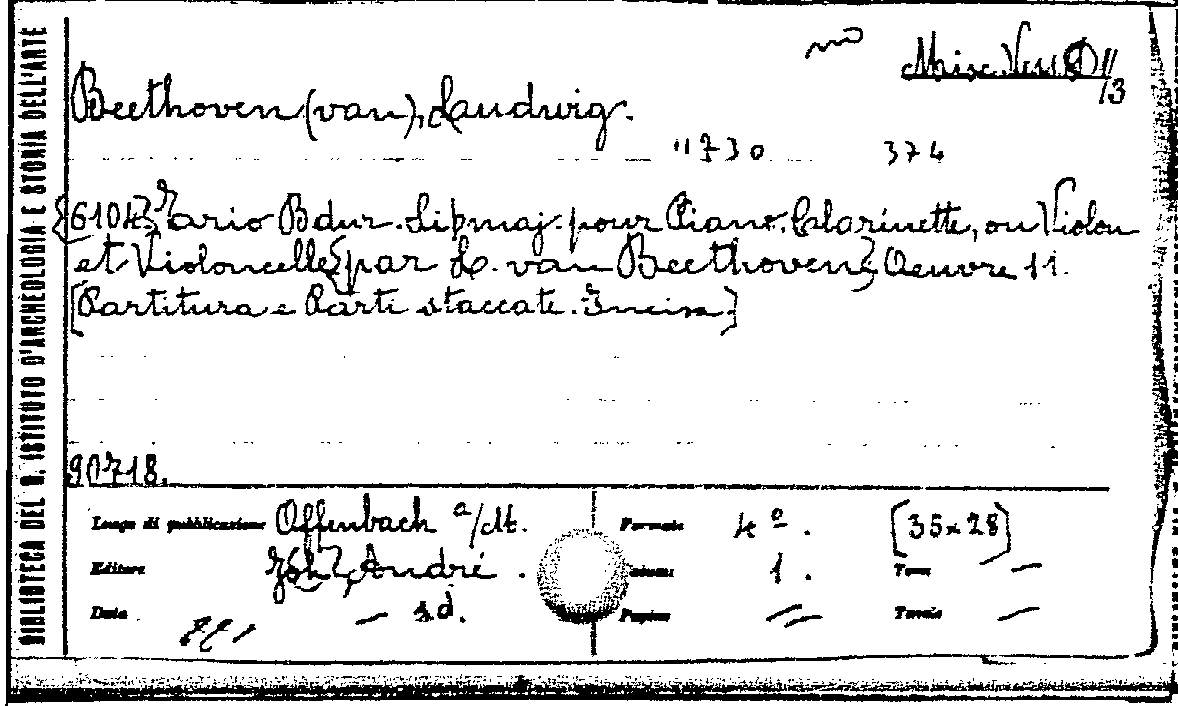 BIBLIOTECA DEL R. ISTITUTO D'ARCHEOLOGIA E STORIA DELL'ARTE
Misc. Vess
11/13
Beethoven (van), Laudwig.
11730 374
{6104} Trio B dur. Si b maj. pour Piano. Clarinette, ou Violon
et Violoncelle {par L. van Beethoven} Oeuvre 11.
[Partitura e Parti staccate. Incisa.]
90718.
Luogo di pubblicazione Offenbach a/M. Formato 4º. [35x28]
Editore Joh. André. Volumi 1. Tomi —
Data — s.d. Pagine — Tavole —